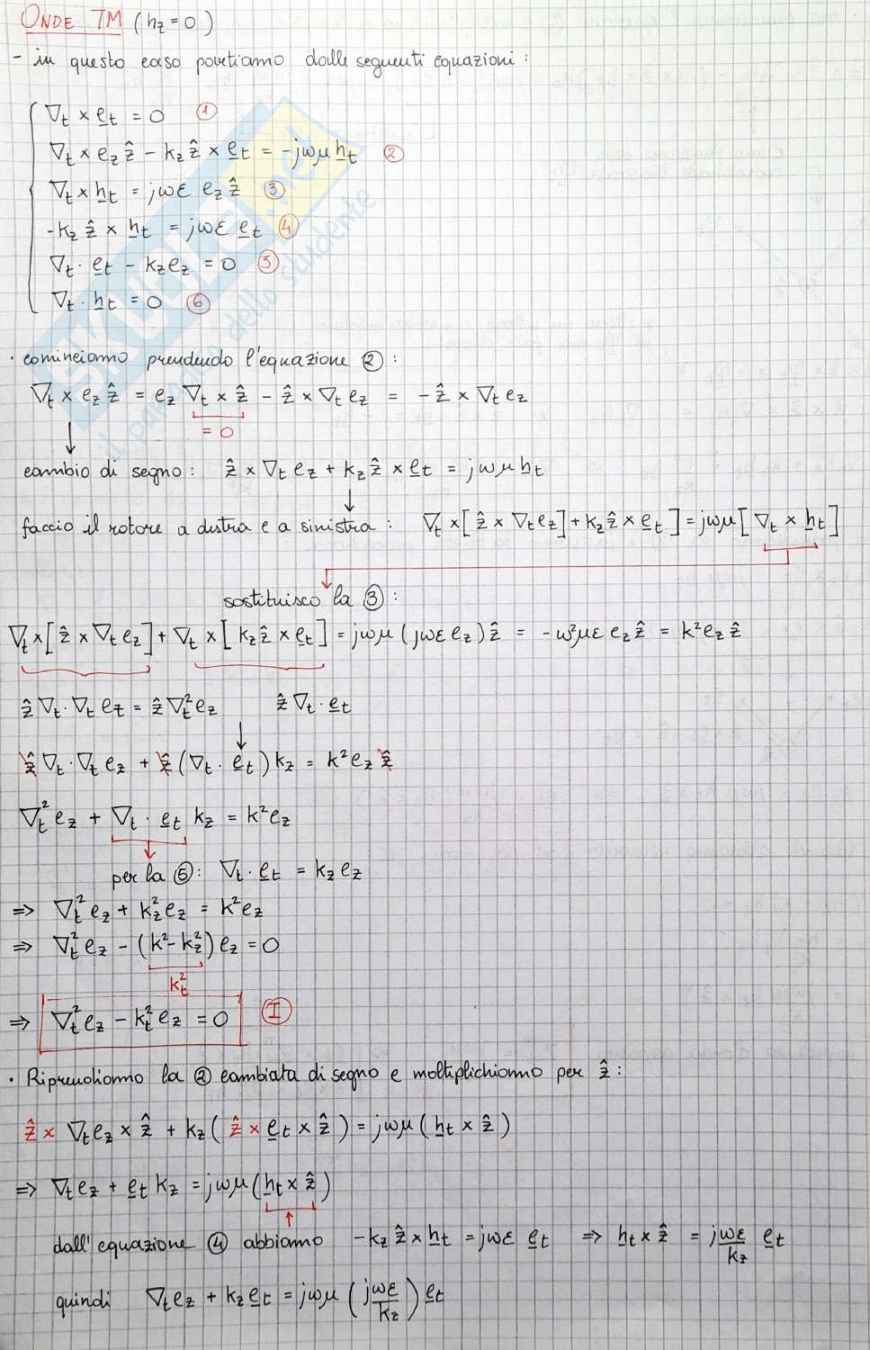 ONDE TM (h_z = 0)
- in questo caso partiamo dalle seguenti equazioni:
∇_t × e_t = 0 ①
∇_t × e_z ẑ - k_z ẑ × e_t = -jωμ h_t ②
∇_t × h_t = jωε e_z ẑ ③
-k_z ẑ × h_t = jωε e_t ④
∇_t · e_t - k_z e_z = 0 ⑤
∇_t · h_t = 0 ⑥
· cominciamo prendendo l'equazione ②:
∇_t × e_z ẑ = e_z ∇_t × ẑ - ẑ × ∇_t e_z = -ẑ × ∇_t e_z
= 0
↓
cambio di segno: ẑ × ∇_t e_z + k_z ẑ × e_t = jωμ h_t
↓
faccio il rotore a destra e a sinistra: ∇_t × [ẑ × ∇_t e_z] + k_z ẑ × e_t] = jωμ [∇_t × h_t]
sostituisco la ③:
∇_t × [ẑ × ∇_t e_z] + ∇_t × [k_z ẑ × e_t] = jωμ (jωε e_z) ẑ = -ω²με e_z ẑ = k² e_z ẑ
ẑ ∇_t · ∇_t e_z = ẑ ∇_t² e_z ẑ ∇_t · e_t
↓
ẑ ∇_t · ∇_t e_z + ẑ (∇_t · e_t) k_z = k² e_z ẑ
∇_t² e_z + ∇_t · e_t k_z = k² e_z
per la ⑤: ∇_t · e_t = k_z e_z
⇒ ∇_t² e_z + k_z² e_z = k² e_z
⇒ ∇_t² e_z - (k² - k_z²) e_z = 0
k_t²
⇒ ∇_t² e_z - k_t² e_z = 0 Ⓘ
· Riprendiamo la ② cambiata di segno e moltiplichiamo per ẑ:
ẑ × ∇_t e_z × ẑ + k_z (ẑ × e_t × ẑ) = jωμ (h_t × ẑ)
⇒ ∇_t e_z + e_t k_z = jωμ (h_t × ẑ)
dall'equazione ④ abbiamo -k_z ẑ × h_t = jωε e_t ⇒ h_t × ẑ = jωε/k_z e_t
quindi ∇_t e_z + k_z e_t = jωμ (jωε/k_z) e_t